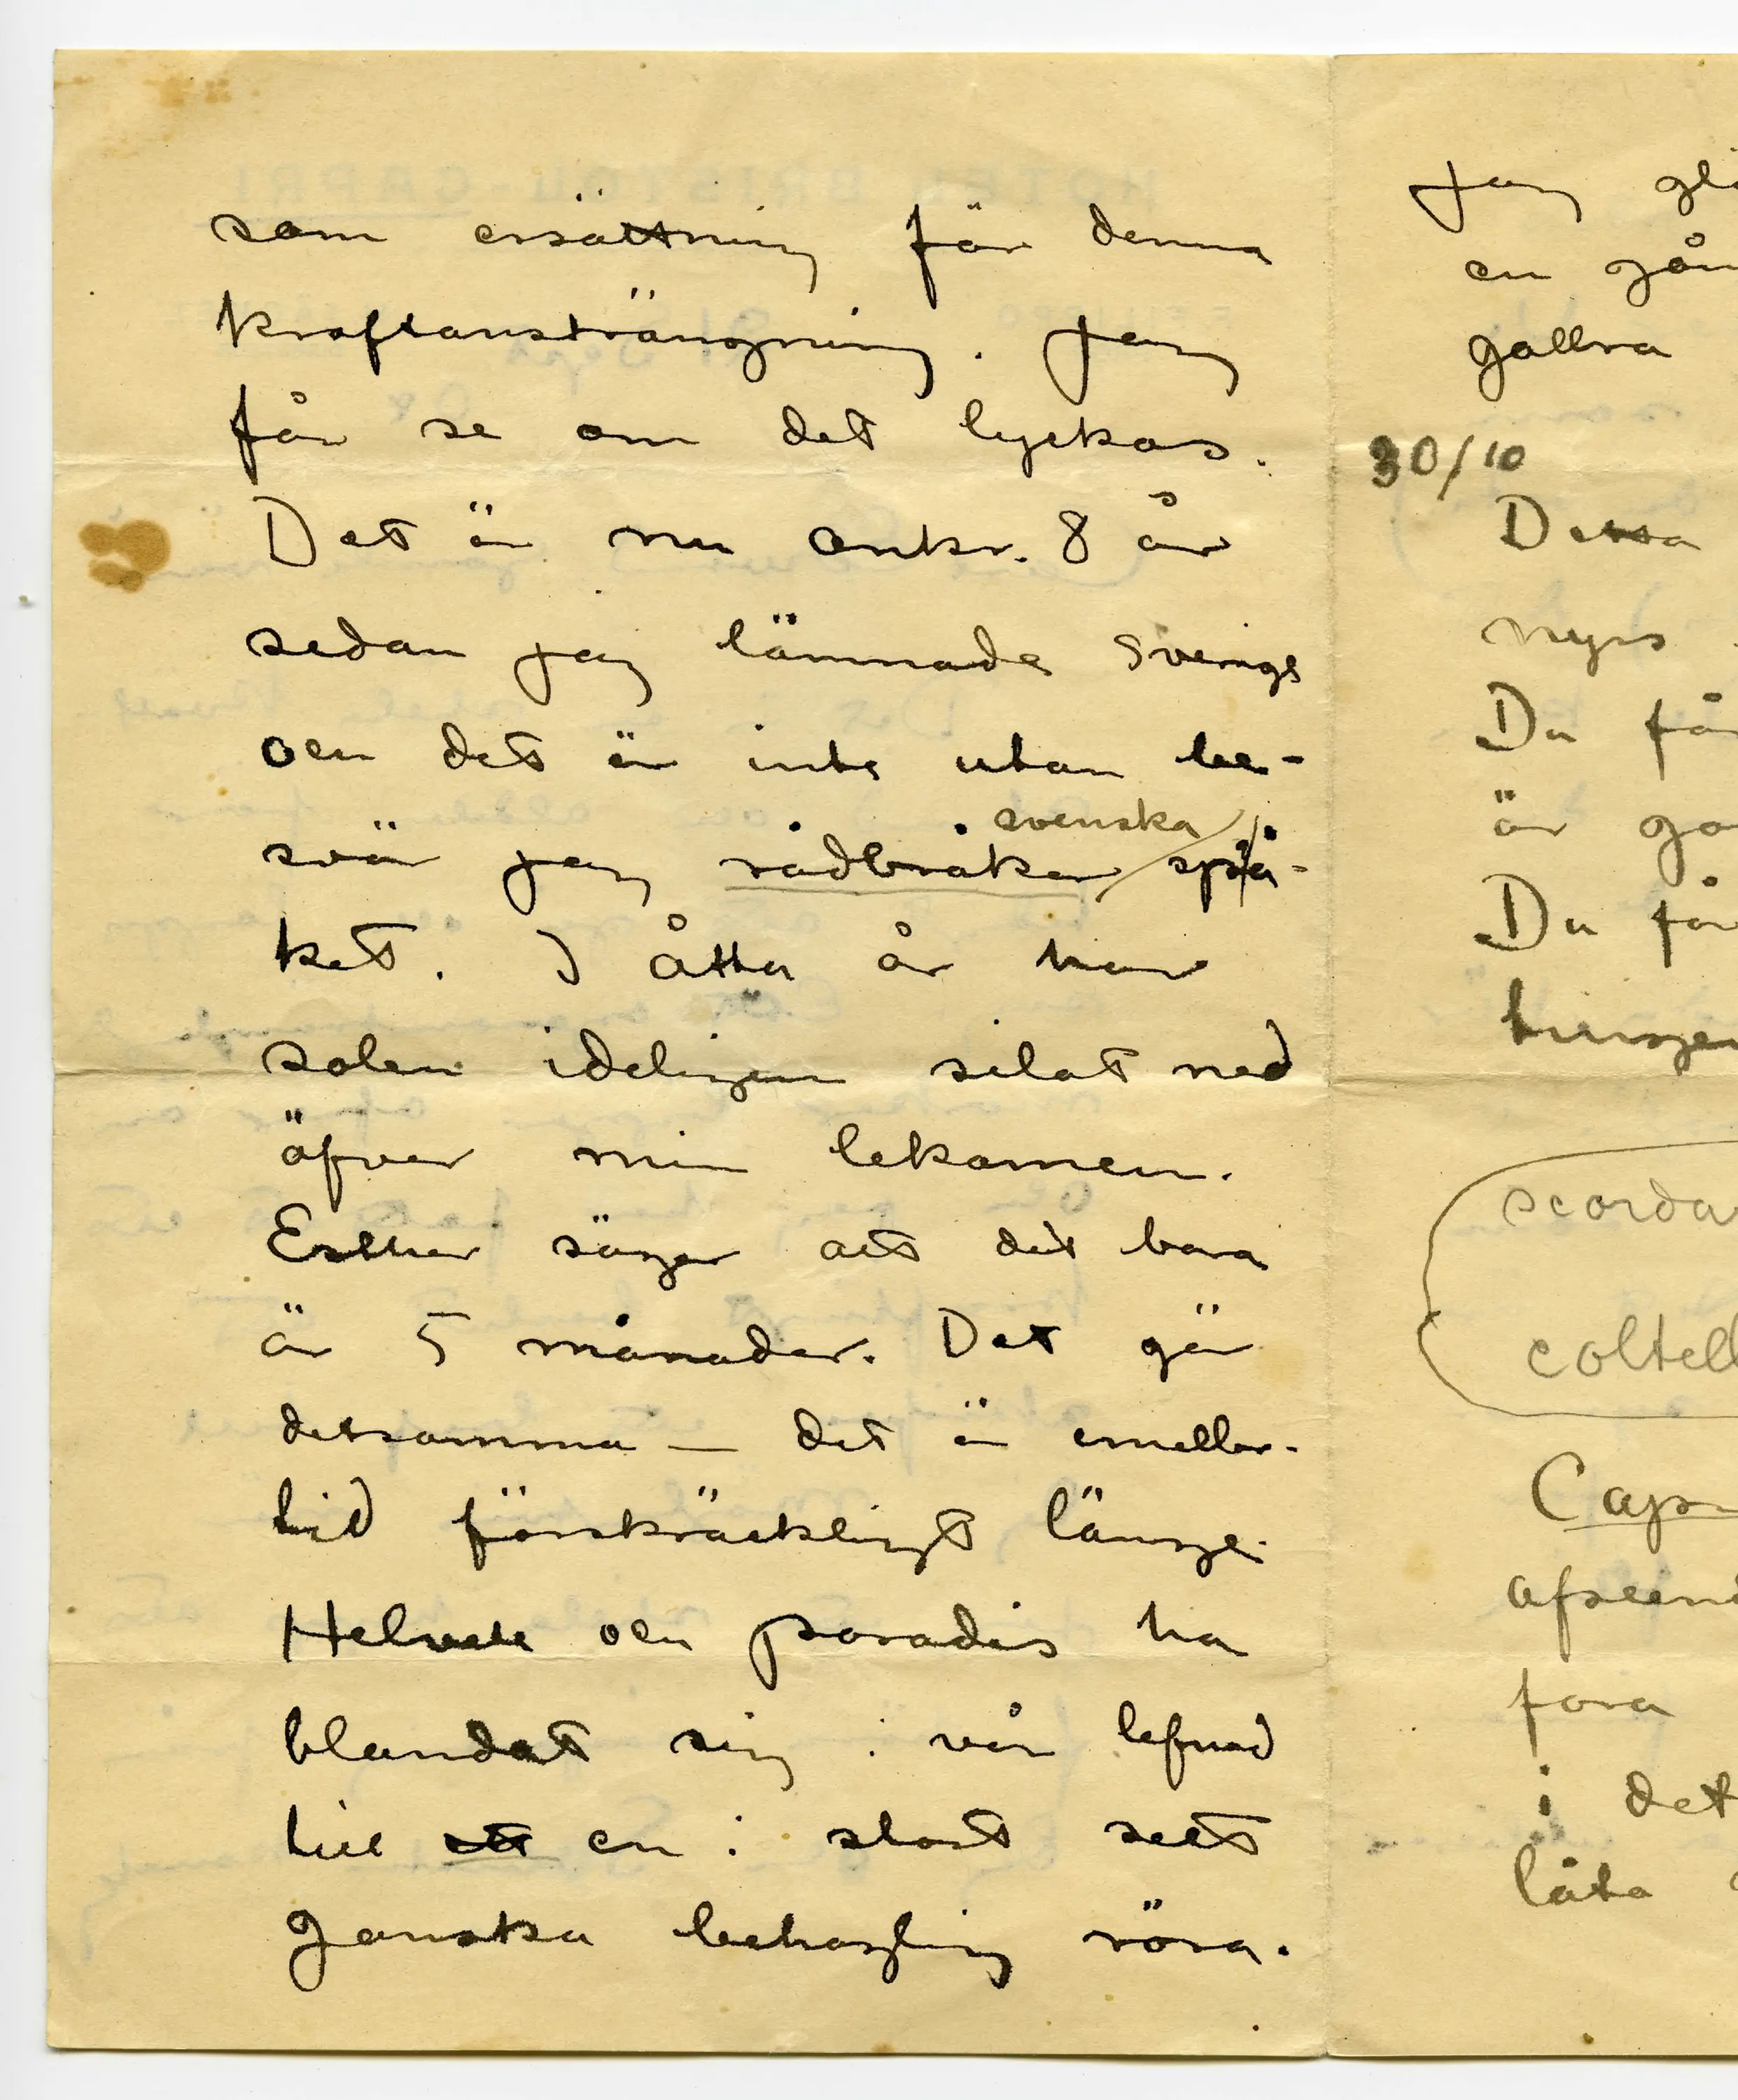 som ersättning för denna
kraftansträngning. Jag
får se om det lyckas.
Det är nu omkr. 8 år
sedan jag lämnade Sverige
och det är inte utan be-
svär jag rådbråkar svenska språ-
ket. I åtta år har
solen ideligen silat ned
öfver min lekamen.
Esther säger att det bara
är 5 månader. Det gör
detsamma — det är emeller-
tid förskräckligt länge.
Helvete och paradis ha
blandat sig i vår lefnad
till ett en i stort sett
ganska behaglig röra.
Jag
en
gallra
30/10
Dessa
nyss
Du får
är
Du får
i det
låta